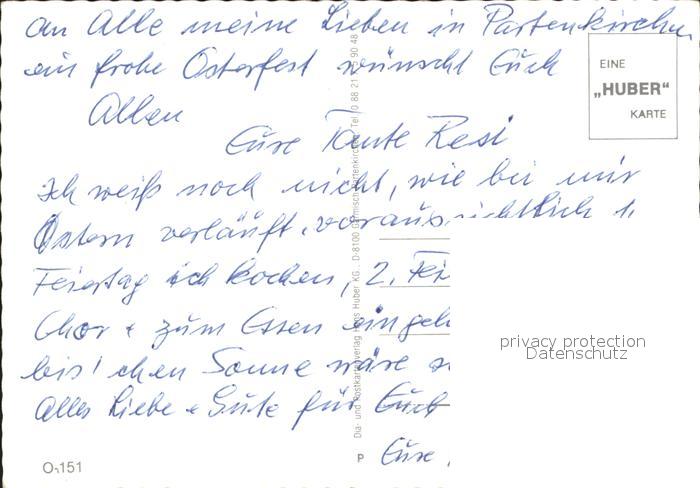 An Alle meine Lieben in Partenkirchen
ein frohe Osterfest wünscht Euch
Allen
Eure Tante Resi
Ich weiß noch nicht, wie bei mir
Ostern verläuft, voraussichtlich 1.
Feiertag ich kochen, 2. Fei
Chor + zum Essen eingel
bis'chen Sonne wäre
Alles Liebe + Gute für Euch
Eure
EINE
„HUBER“
KARTE
Dia- und Postkartenverlag Hans Huber KG. D-8100 Garmisch-Partenkirchen Tel. 0 88 21
90 48
P
O-151
privacy protection
Datenschutz